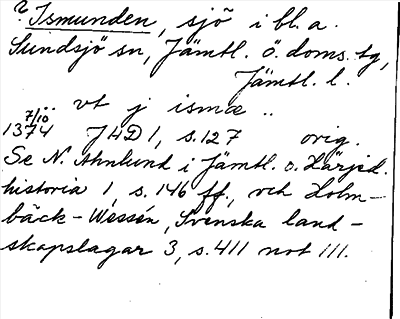 ? Ismunden, sjö i bl.a.
Sundsjö sn, Jämtl. ö. doms. tg,
Jämtl. l.
.. vt j ismæ ..
7/10
1374 J H D 1, s. 127 orig.
Se N. Ahnlund i Jämtl. o. Härjed.
historia 1, s. 146 ff., och Holm-
bäck-Wessén, Svenska land-
skapslagar 3, s. 411 not 111.